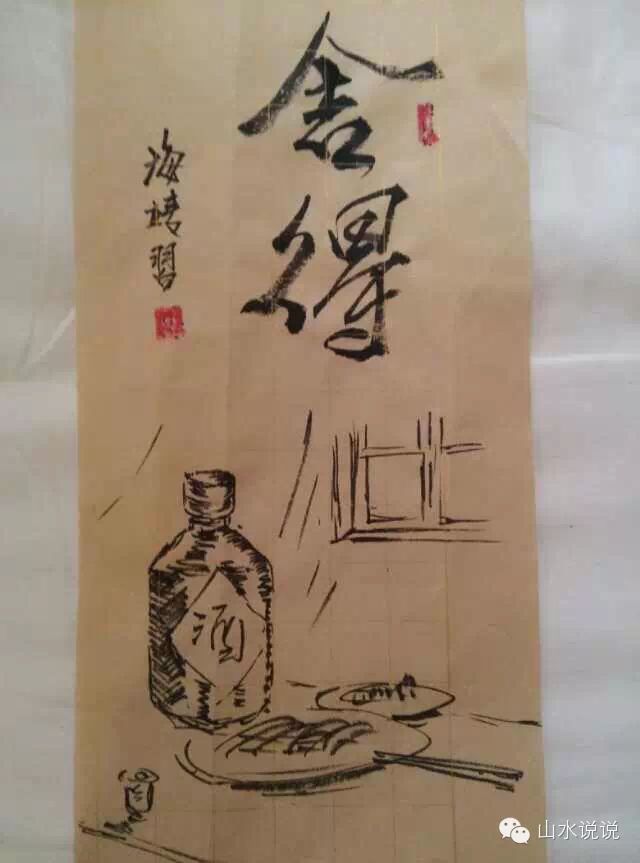 舍得
海
習
酒
山水说说